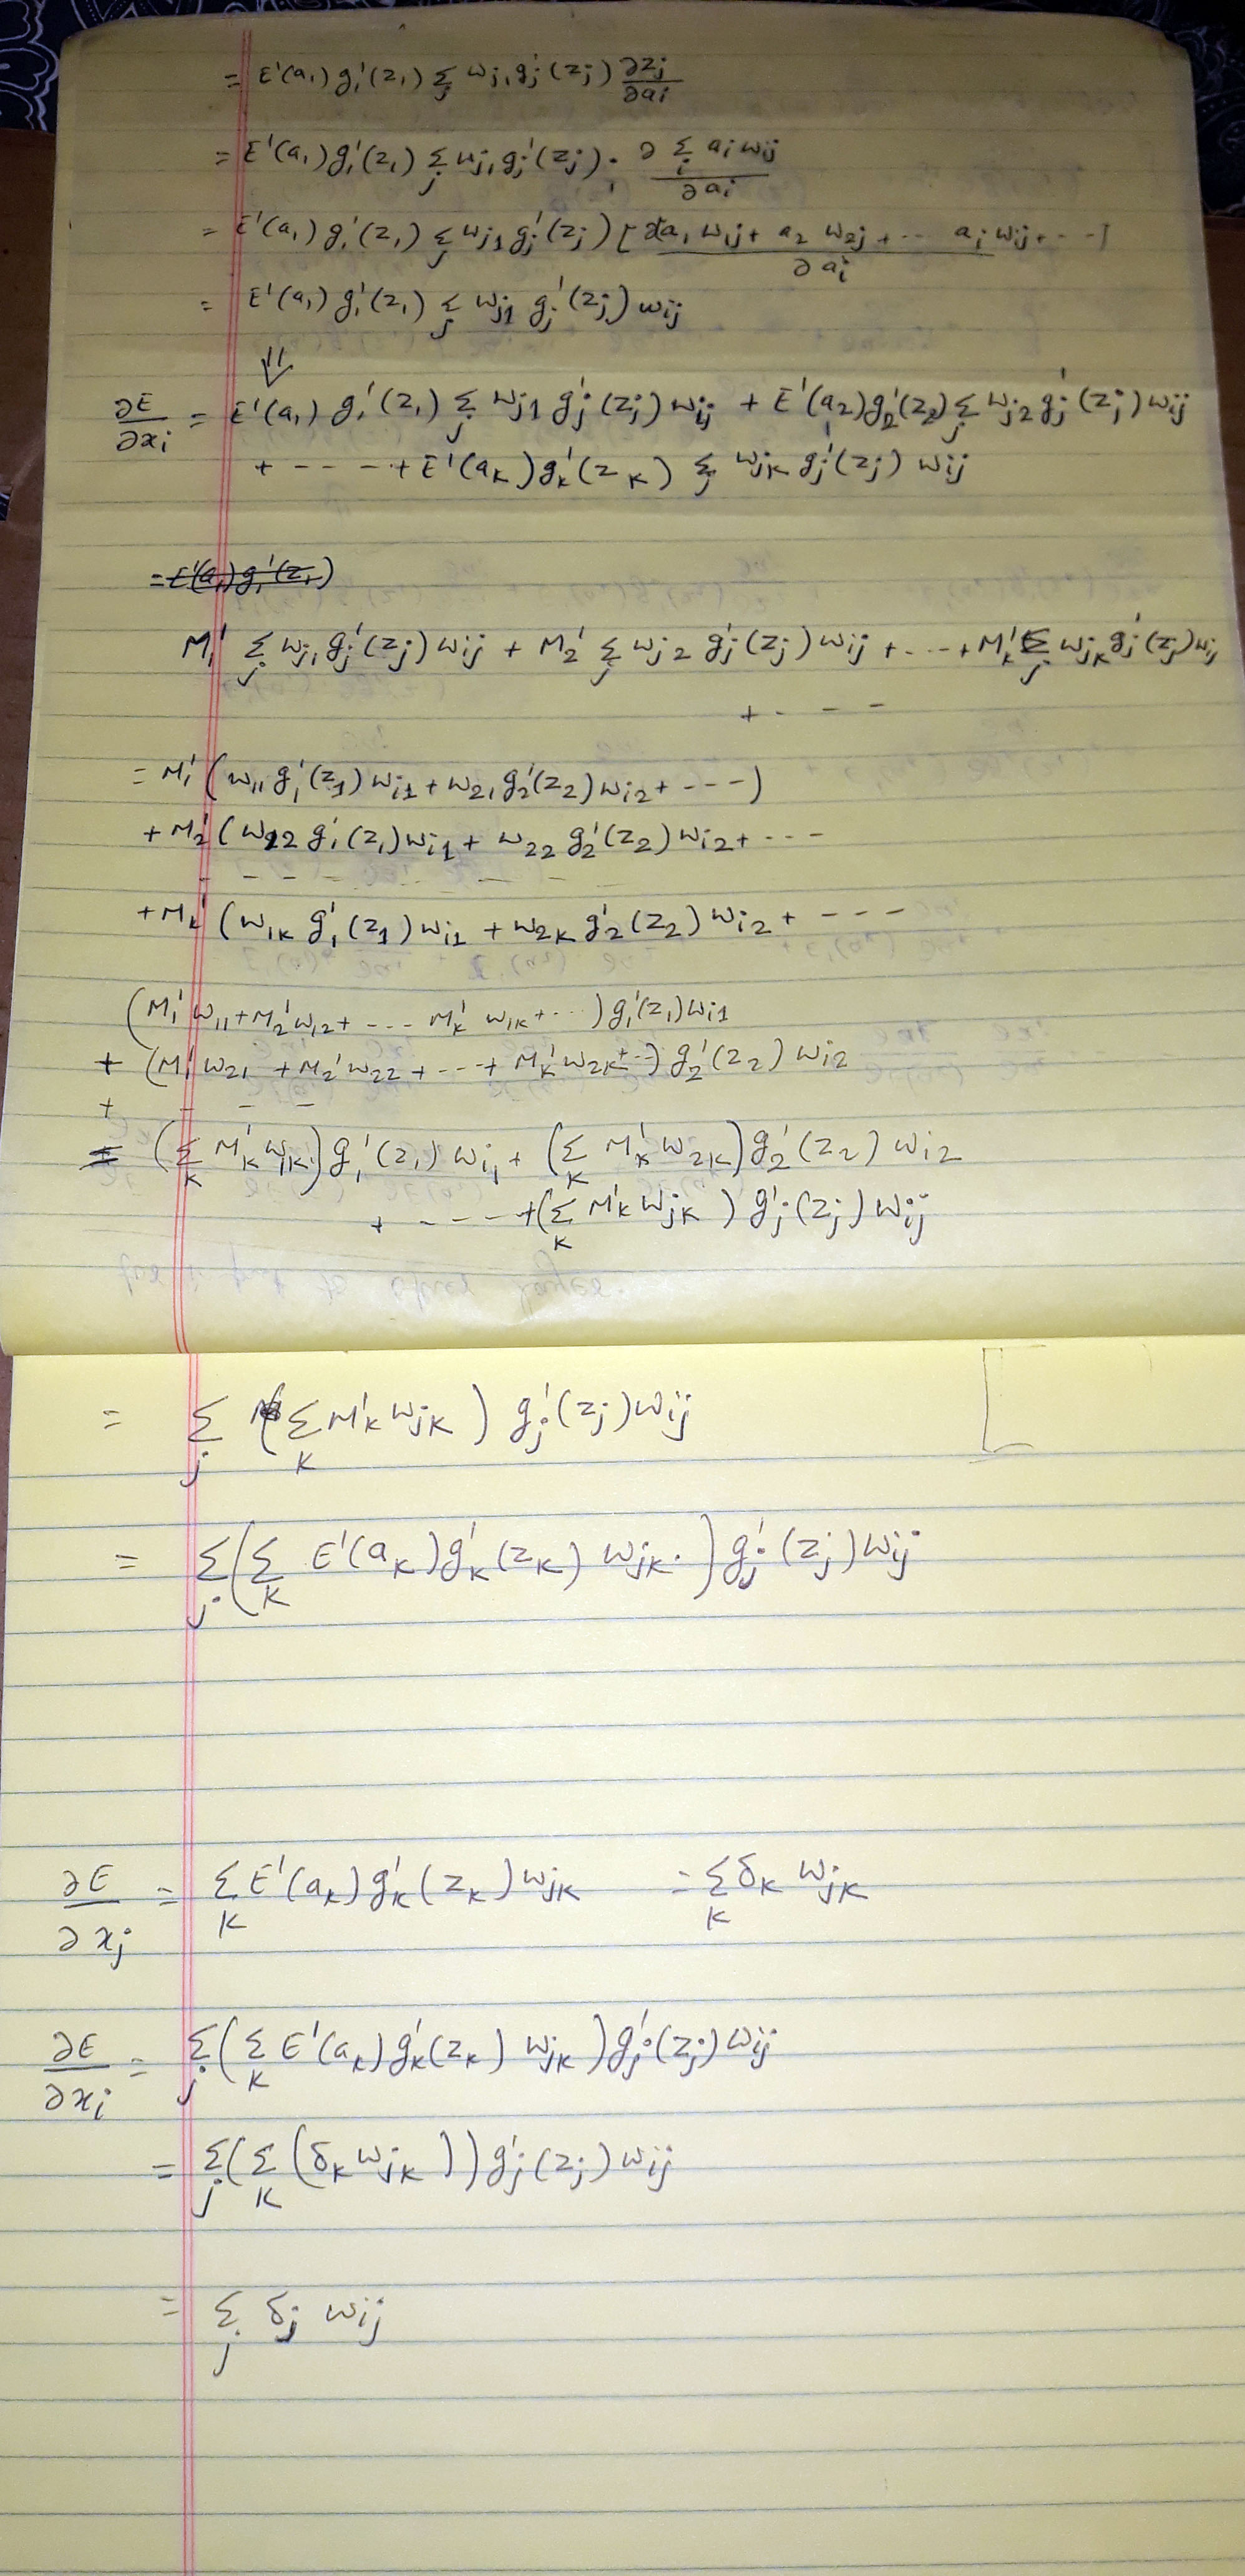 = E'(a₁) g₁'(z₁) Σ_j w_j₁ g_j'(z_j) ∂z_j/∂a_i
= E'(a₁) g₁'(z₁) Σ_j w_j₁ g_j'(z_j) · ∂ Σ_i a_i w_ij / ∂a_i
= E'(a₁) g₁'(z₁) Σ_j w_j1 g_j'(z_j) [∂a₁ w_1j + a₂ w_2j + ... a_i w_ij + ---] / ∂a_i
= E'(a₁) g₁'(z₁) Σ_j w_j1 g_j'(z_j) w_ij
⇓
∂E/∂x_i = E'(a₁) g₁'(z₁) Σ_j w_j1 g_j'(z_j) w_ij + E'(a₂) g₂'(z₂) Σ_j w_j2 g_j'(z_j) w_ij
+ ---- + E'(a_k) g_k'(z_k) Σ_j w_jk g_j'(z_j) w_ij
= E'(a₁) g₁'(z₁)
M₁' Σ_j w_j₁ g_j'(z_j) w_ij + M₂' Σ_j w_j2 g_j'(z_j) w_ij + ... + M_k' Σ_j w_jk g_j'(z_j) w_ij
+ - - -
= M₁' (w₁₁ g₁'(z₁) w_i1 + w₂₁ g₂'(z₂) w_i2 + ---)
+ M₂' (w₁₂ g₁'(z₁) w_i1 + w₂₂ g₂'(z₂) w_i2 + ---
- - - - - - - - -
+ M_k' (w_1k g₁'(z₁) w_i1 + w_2k g₂'(z₂) w_i2 + ----
(M₁' w₁₁ + M₂' w₁₂ + --- M_k' w_1k + ...) g₁'(z₁) w_i1
+ (M₁' w₂₁ + M₂' w₂₂ + --+ M_k' w_2k + ..) g₂'(z₂) w_i2
+ - - -
= (Σ_k M_k' w_1k) g₁'(z₁) w_i₁ + (Σ_k M_k' w_2k) g₂'(z₂) w_i2
+ ---- + (Σ_k M_k' w_jk) g_j'(z_j) w_ij
= Σ_j (Σ_k M_k' w_jk) g_j'(z_j) w_ij
= Σ_j (Σ_k E'(a_k) g_k'(z_k) w_jk.) g_j'(z_j) w_ij
∂E/∂x_j = Σ_k E'(a_k) g_k'(z_k) w_jk = Σ_k δ_k w_jk
∂E/∂x_i = Σ_j (Σ_k E'(a_k) g_k'(z_k) w_jk) g_j'(z_j) w_ij
= Σ_j (Σ_k (δ_k w_jk)) g_j'(z_j) w_ij
= Σ_j δ_j w_ij